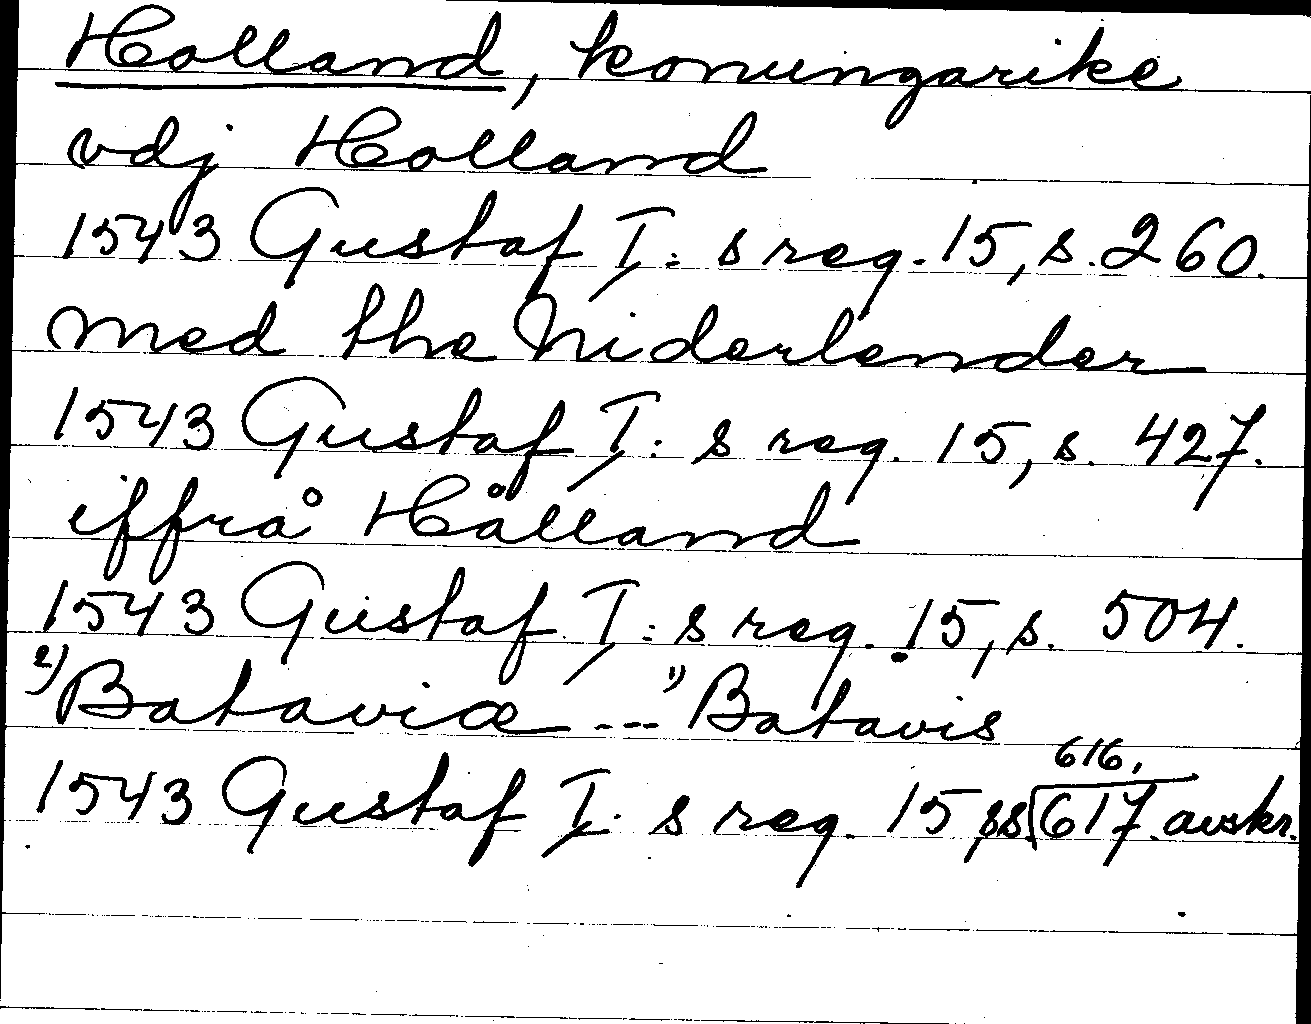 Holland, konungarike
vdj Holland
1543 Gustaf I:s reg. 15, s. 260.
med the Niderlender
1543 Gustaf I:s reg. 15, s. 427.
iffrå Hålland
1543 Gustaf I:s reg. 15, s. 504.
2) Bataviæ --- 1) Batavis
1543 Gustaf I:s reg. 15, ss. 616, 617. avskr.